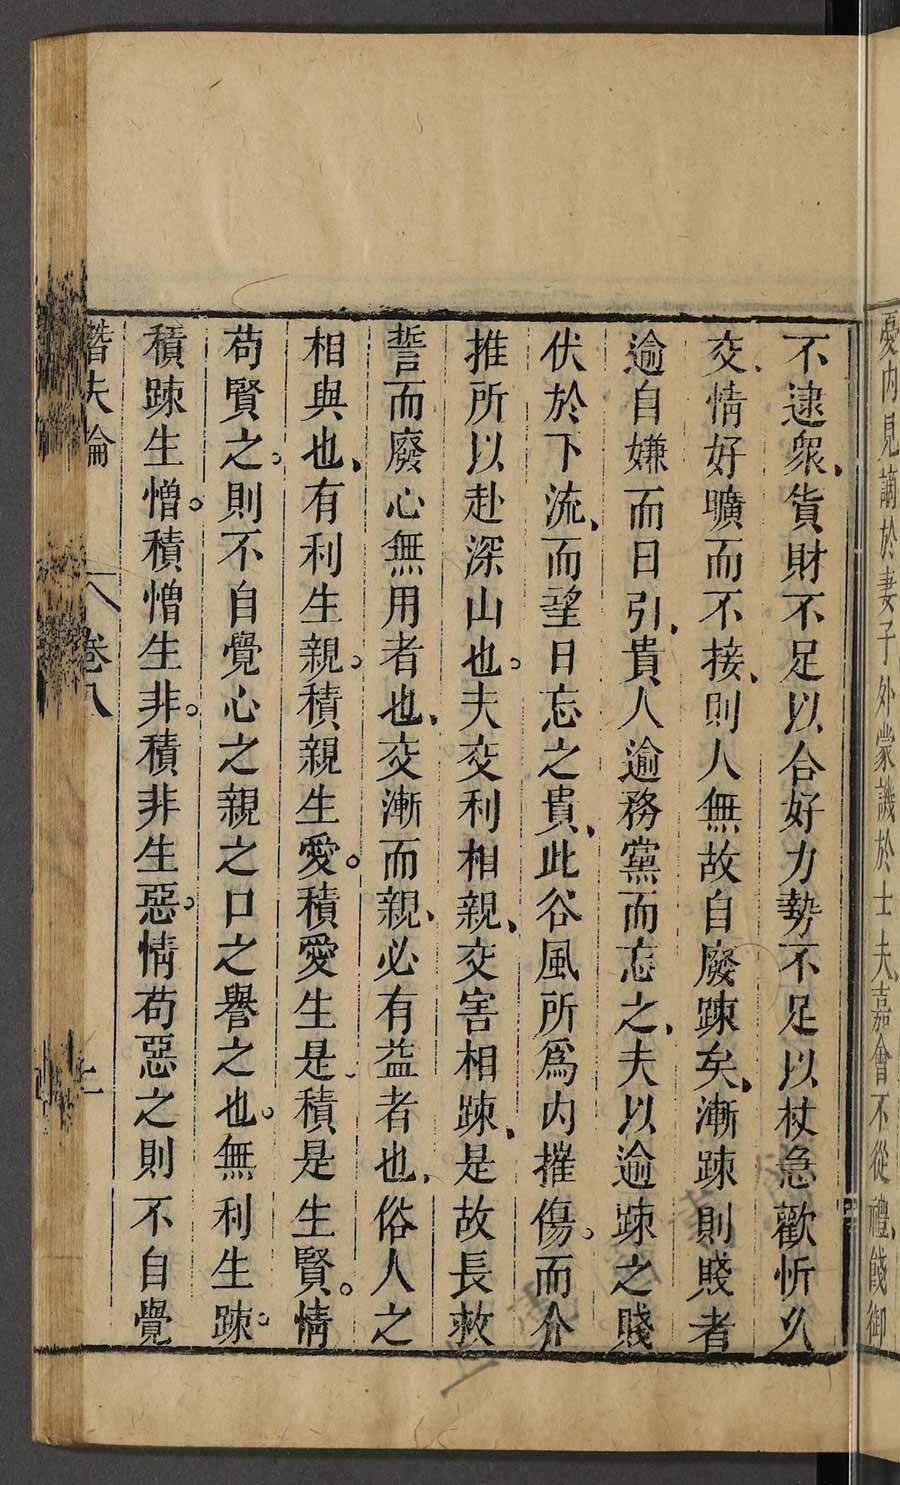 憂內見謫於妻子外蒙譏於士夫嘉會不從禮餞御
不逮衆貨財不足以合好力勢不足以杖急歡忻久
交情好曠而不接則人無故自廢踈矣漸踈則賤者
逾自嫌而日引貴人逾務黨而忘之夫以逾踈之賤
伏於下流而望日忘之貴此谷風所爲内摧傷而介
推所以赴深山也夫交利相親交害相踈是故長救
誓而廢心無用者也交漸而親必有益者也俗人之
相與也有利生親積親生愛積愛生是積是生賢情
苟賢之則不自覺心之親之口之譽之也無利生踈
積踈生憎積憎生非積非生惡情苟惡之則不自覺
潛夫論 卷八